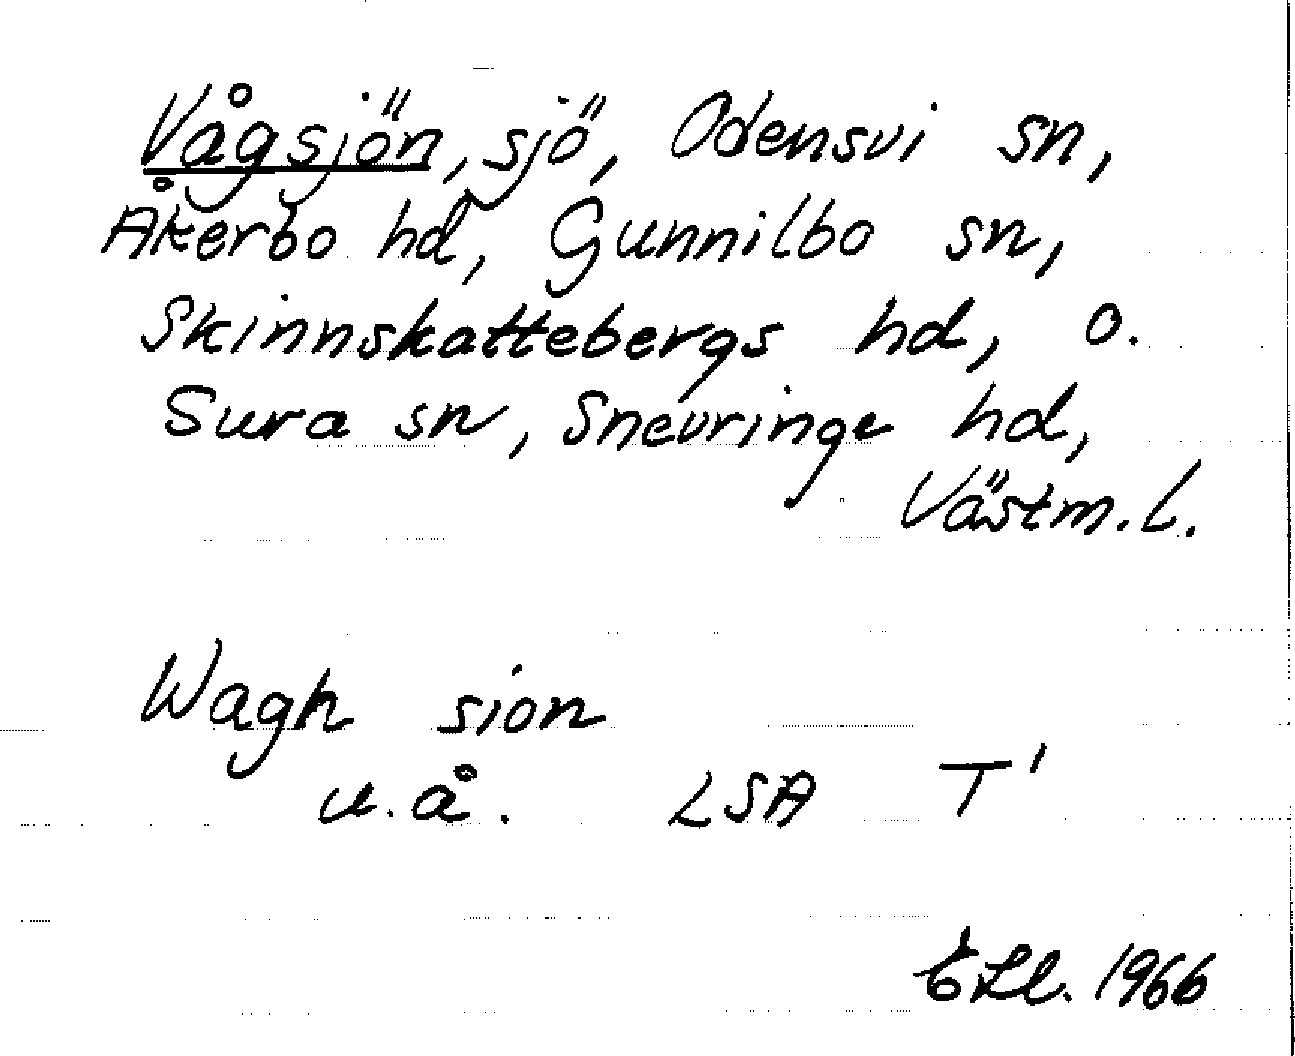 Vågsjön, sjö, Odensvi sn,
Åkerbo hd, Gunnilbo sn,
Skinnskattebergs hd, o.
Sura sn, Snevringe hd,
Västm. l.
Wagh sion
u. å. LSA T'
1966